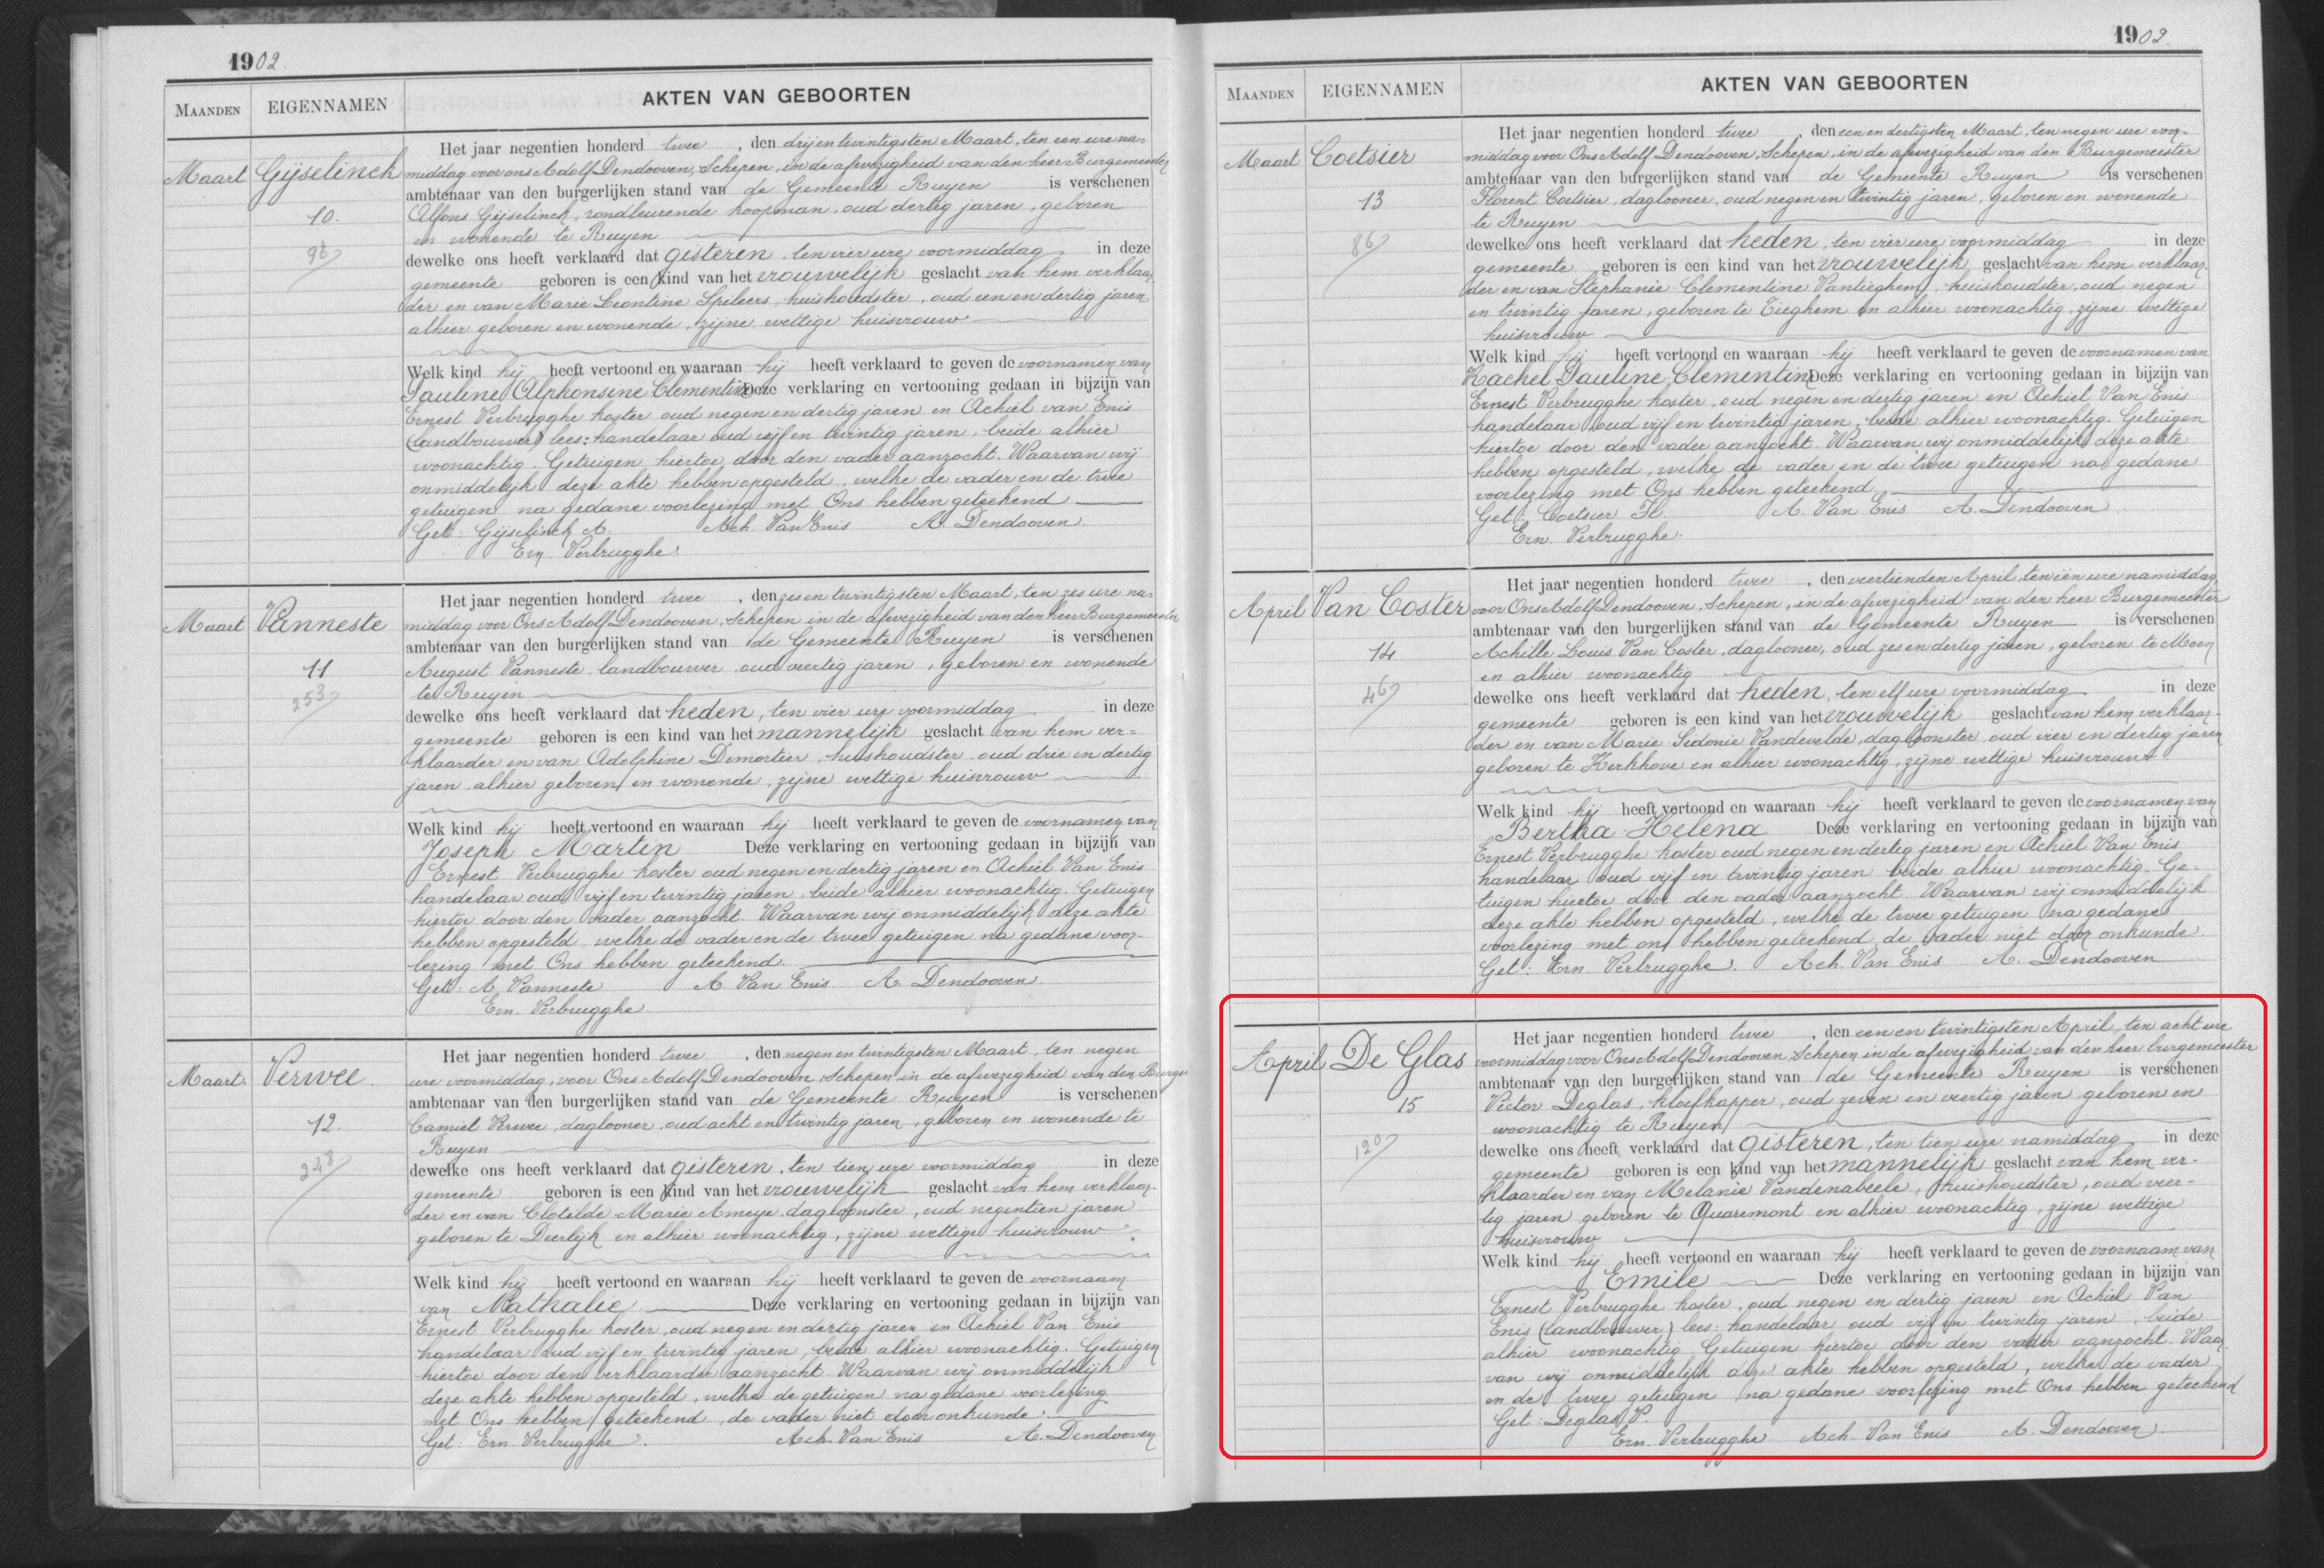 1902.
MAANDEN
EIGENNAMEN
AKTEN VAN GEBOORTEN
Maart
Gijselinck
10.
96
Het jaar negentien honderd twee, den drij en twintigsten Maart, ten een ure na-
middag voor ons Adolf Dendooven, Schepen, in de afwezigheid van den heer Burgemeester
ambtenaar van den burgerlijken stand van de Gemeente Ruyen is verschenen
Alfons Gijselinck, rondleurende koopman, oud dertig jaren, geboren
en wonende te Ruyen
dewelke ons heeft verklaard dat gisteren, ten vier ure voormiddag in deze
gemeente geboren is een kind van het vrouwelijk geslacht van hem verklaar-
der en van Marie Leontine Spileers, huishoudster, oud een en dertig jaren
alhier geboren en wonende, zijne wettige huisvrouw
Welk kind hij heeft vertoond en waaraan hij heeft verklaard te geven de voornamen van
Pauline Alphonsine Clementine Deze verklaring en vertooning gedaan in bijzijn van
Ernest Verbrugghe koster oud negen en dertig jaren en Achiel van Enis
(landbouwer) lees: handelaar oud vijf en twintig jaren, beide alhier
woonachtig. Getuigen hiertoe door den vader aanzocht. Waarvan wij
onmiddelijk deze akte hebben opgesteld, welke de vader en de twee
getuigen na gedane voorlezing met Ons hebben geteekend
Get: Gijselinck A. Ach Van Enis A. Dendooven
Ern. Verbrugghe.
Maart
Vanneste
11
253
Het jaar negentien honderd twee, den zes en twintigsten Maart, ten zes ure na-
middag voor Ons Adolf Dendooven, Schepen in de afwezigheid van den heer Burgemeester
ambtenaar van den burgerlijken stand van de Gemeente Ruyen is verschenen
August Vanneste landbouwer oud veertig jaren, geboren en wonende
te Ruyen
dewelke ons heeft verklaard dat heden, ten vier ure voormiddag in deze
gemeente geboren is een kind van het mannelijk geslacht van hem ver=
klaarder en van Adolphine Demortier, huishoudster oud drie en dertig
jaren alhier geboren en wonende, zijne wettige huisvrouw
Welk kind hij heeft vertoond en waaraan hij heeft verklaard te geven de voornamen van
Joseph Martin Deze verklaring en vertooning gedaan in bijzijn van
Ernest Verbrugghe koster oud negen en dertig jaren en Achiel Van Enis
handelaar oud vijf en twintig jaren, beide alhier woonachtig. Getuigen
hiertoe door den vader aanzocht. Waarvan wij onmiddelijk deze akte
hebben opgesteld welke de vader en de twee getuigen na gedane voor-
lezing met Ons hebben geteekend.
Get: A. Vanneste A. Van Enis A. Dendooven
Ern. Verbrugghe
Maart.
Verwee
12.
248
Het jaar negentien honderd twee, den negen en twintigsten Maart, ten negen
ure voormiddag, voor Ons Adolf Dendooven, Schepen in de afwezigheid van den Burge
ambtenaar van den burgerlijken stand van de Gemeente Ruyen is verschenen
Camiel Verwee, daglooner oud acht en twintig jaren, geboren en wonende te
Ruyen
dewelke ons heeft verklaard dat gisteren, ten tien ure voormiddag in deze
gemeente geboren is een kind van het vrouwelijk geslacht van hem verklaar-
der en van Clotilde Marie Ameye dagloonster, oud negentien jaren
geboren te Deerlijk en alhier woonachtig, zijne wettige huisvrouw
Welk kind hij heeft vertoond en waaraan hij heeft verklaard te geven de voornaam
van Nathalie Deze verklaring en vertooning gedaan in bijzijn van
Ernest Verbrugghe koster, oud negen en dertig jaren en Achiel Van Enis
handelaar oud vijf en twintig jaren, beide alhier woonachtig. Getuigen
hiertoe door den verklaarder aanzocht. Waarvan wij onmiddelijk
deze akte hebben opgesteld, welke de getuigen na gedane voorlezing
met Ons hebben geteekend, de vader niet door onkunde.
Get: Ern. Verbrugghe. Ach. Van Enis A. Dendooven
1902.
MAANDEN
EIGENNAMEN
AKTEN VAN GEBOORTEN
Maart
Coetsier
13
86
Het jaar negentien honderd twee, den een en dertigsten Maart, ten negen ure voor-
middag voor Ons Adolf Dendooven, Schepen, in de afwezigheid van den Burgemeester
ambtenaar van den burgerlijken stand van de Gemeente Ruyen is verschenen
Florent Coetsier, daglooner, oud negen en twintig jaren, geboren en wonende
te Ruyen
dewelke ons heeft verklaard dat heden, ten vier ure voormiddag in deze
gemeente geboren is een kind van het vrouwelijk geslacht van hem verklaar-
der en van Stephanie Clementine Vantieghem, huishoudster, oud negen
en twintig jaren, geboren te Tieghem en alhier woonachtig, zijne wettige
huisvrouw
Welk kind hij heeft vertoond en waaraan hij heeft verklaard te geven de voornamen van
Rachel Pauline Clementine Deze verklaring en vertooning gedaan in bijzijn van
Ernest Verbrugghe koster, oud negen en dertig jaren en Achiel Van Enis
handelaar oud vijf en twintig jaren, beide alhier woonachtig. Getuigen
hiertoe door den vader aanzocht. Waarvan wij onmiddelijk deze akte
hebben opgesteld, welke de vader en de twee getuigen na gedane
voorlezing met Ons hebben geteekend
Get: Coetsier Fl. A. Van Enis A. Dendooven
Ern. Verbrugghe.
April
Van Coster
14
46
Het jaar negentien honderd twee, den veertienden April, ten één ure namiddag,
voor Ons Adolf Dendooven, Schepen, in de afwezigheid van der heer Burgemeester
ambtenaar van den burgerlijken stand van de Gemeente Ruyen is verschenen
Achille Louis Van Coster, daglooner, oud zes en dertig jaren, geboren te Moen
en alhier woonachtig
dewelke ons heeft verklaard dat heden, ten elf ure voormiddag in deze
gemeente geboren is een kind van het vrouwelijk geslacht van hem verklaar-
der en van Marie Sidonie Vandevelde, dagloonster oud vier en dertig jaren
geboren te Kerkhove en alhier woonachtig, zijne wettige huisvrouw
Welk kind hij heeft vertoond en waaraan hij heeft verklaard te geven de voornamen van
Bertha Helena Deze verklaring en vertooning gedaan in bijzijn van
Ernest Verbrugghe koster oud negen en dertig jaren en Achiel Van Enis
handelaar oud vijf en twintig jaren beide alhier woonachtig. Ge-
tuigen hiertoe door den vader aanzocht. Waarvan wij onmiddelijk
deze akte hebben opgesteld, welke de twee getuigen na gedane
voorlezing met ons hebben geteekend, de vader niet door onkunde.
Get: Ern. Verbrugghe. Ach. Van Enis A. Dendooven
April
De Glas
15
120
Het jaar negentien honderd twee, den een en twintigsten April, ten acht ure
voormiddag voor Ons Adolf Dendooven, Schepen in de afwezigheid van den heer burgemeester
ambtenaar van den burgerlijken stand van de Gemeente Ruyen is verschenen
Victor Deglas, kloefkapper, oud zeven en veertig jaren, geboren en
woonachtig te Ruyen
dewelke ons heeft verklaard dat gisteren, ten tien ure namiddag in deze
gemeente geboren is een kind van het mannelijk geslacht van hem ver-
klaarder en van Melanie Vandenabeele, huishoudster, oud veer-
tig jaren geboren te Quaremont en alhier woonachtig, zijne wettige
huisvrouw
Welk kind hij heeft vertoond en waaraan hij heeft verklaard te geven de voornaam van
Emile Deze verklaring en vertooning gedaan in bijzijn van
Ernest Verbrugghe koster, oud negen en dertig jaren en Achiel Van
Enis (landbouwer) lees: handelaar oud vijf en twintig jaren, beide
alhier woonachtig. Getuigen hiertoe door den vader aanzocht. Waar-
van wij onmiddelijk deze akte hebben opgesteld, welke de vader
en de twee getuigen na gedane voorlezing met Ons hebben geteekend
Get: Deglas V.
Ern. Verbrugghe Ach. Van Enis A. Dendooven.